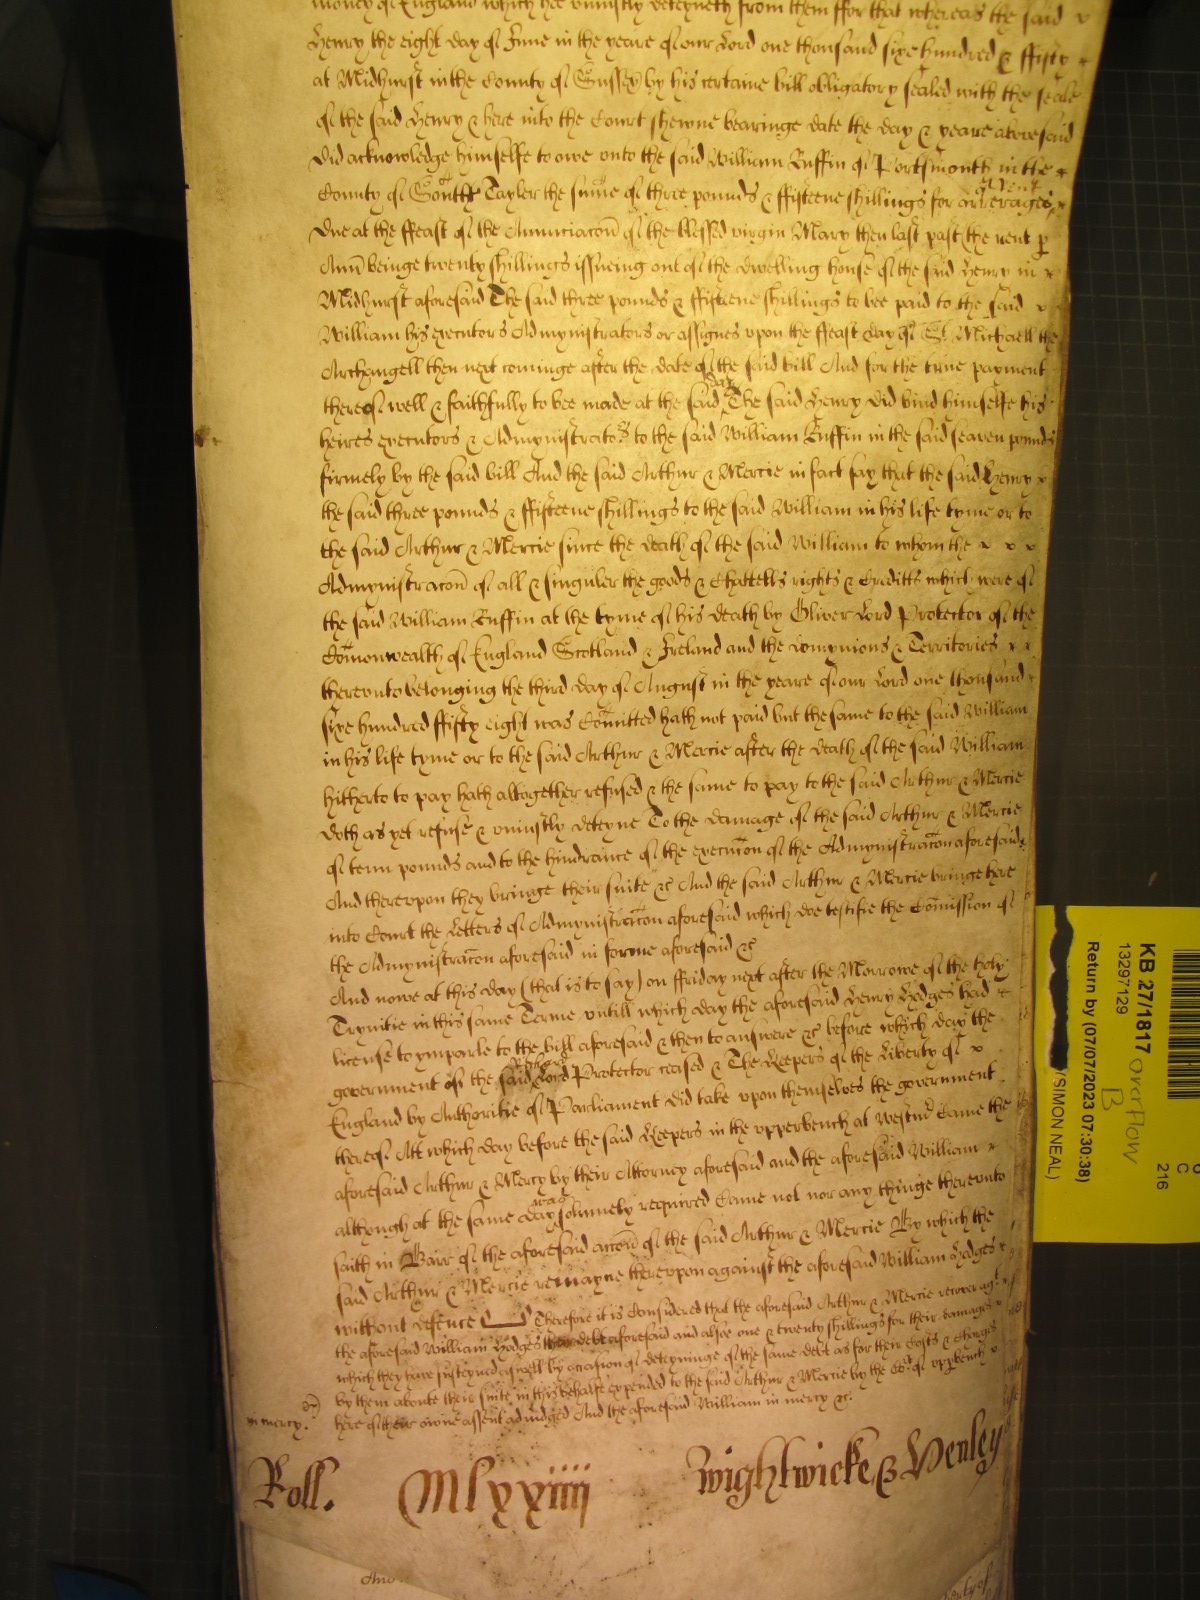 money of England which hee uniustly deteyneth from them ffor that whereas the said
Henry the eight day of June in the yeare of our Lord one thousand sixe hundred & ffifty
at Midhurst in the County of Sussex by his certaine bill obligatory sealed with the seale
of the said Henry & here into the Court shewne bearinge date the day & yeare aforesaid
did acknowledge himselfe to owe unto the said William Ruffin of Portsmouth in the
County of South Tayler the sume of three pounds & ffifteene shillings for arrerages
of rent
due at the ffeast of the Annunciacon of the blessed virgin Mary then last past the rent p
Ann beinge twenty shillings issueing out of the dwelling house of the said Henry in
Midhurst aforesaid The said three pounds & ffifteene shillings to bee paid to the said
William his executors Admynistrators or assignes upon the ffeast day of St Michaell the
Archangell then next cominge after the date of the said bill And for the true payment
thereof well & faithfully to bee made at the said day The said Henry did bind himselfe his
heires executors & Admynistrators to the said William Ruffin in the said seaven pounds
firmely by the said bill And the said Arthur & Mercie in fact say that the said Henry
the said three pounds & ffifteene shillings to the said William in his life tyme or to
the said Arthur & Mercie since the death of the said William to whom the
Admynistracon of all & singuler the goods & Chattells rights & Creditts which were of
the said William Ruffin at the tyme of his death by Oliver Lord Protector of the
Comonwealth of England Scotland & Ireland and the domynions & Territories
thereunto belonging the third day of August in the yeare of our Lord one thousand
sixe hundred ffifty eight was Comitted hath not paid but the same to the said William
in his life tyme or to the said Arthur & Mercie after the death of the said William
hitherto to pay hath altogether refused & the same to pay to the said Arthur & Mercie
doth as yet refuse & uniustly deteyne To the damage of the said Arthur & Mercie
of tenn pounds and to the hindrance of the execucon of the Admynistracon aforesaid
And thereupon they bringe their suite &c And the said Arthur & Mercie bringe here
into Court the Letters of Admynistracon aforesaid which doe testifie the Comission of
the Admynistracon aforesaid in forme aforesaid &c
And nowe at this day (that is to say) on ffriday next after the Morrowe of the holy
Trynitie in this same Terme untill which day the aforesaid Henry Hedges had
license to ymparle to the bill aforesaid & then to answere &c before which day the
government of the said Richard Lord Protector ceased & The Keepers of the Liberty of
England by Authoritie of Parliament did take upon themselves the government
thereof Att which day before the said Keepers in the upperbench at Westmr Came the
aforesaid Arthur & Mercy by their Attorney aforesaid and the aforesaid William
although at the same day was solemnely required Came not nor any thinge thereunto
saith in Barr of the aforesaid accon of the said Arthur & Mercie By which the
said Arthur & Mercie remayne thereupon against the aforesaid William Hedges
without defence Therefore it is Considered that the aforesaid Arthur & Mercie recover agt
the aforesaid William Hedges their debt aforesaid and alsoe one & twenty shillings for their damages
which they have susteyned aswell by occasion of deteyninge of the same debt as for their Costs & Charges
by them aboute their suite in this behalfe expended to the said Arthur & Mercie by the Cort of upperbench
here of their owne assent adiudged And the aforesaid William in mercy &c.
in mercy.
Roll. Mlxxiiij Wightwicke & Henley
KB 27/1817 overflow
B
13297129
Return by (07/07/2023 07:30:38)
(SIMON NEAL)
C
216